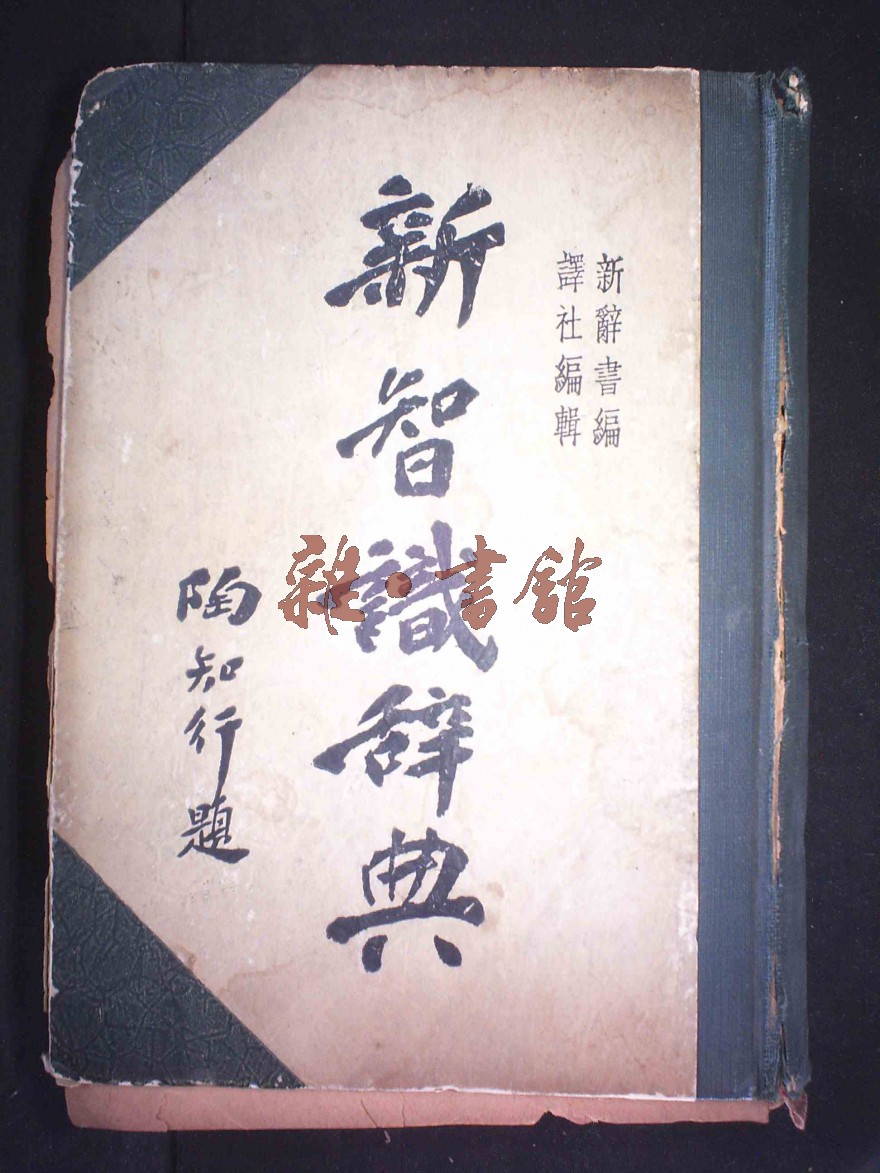 新辭書編
譯社編輯
新智識辞典
陶知行題
雜·書館